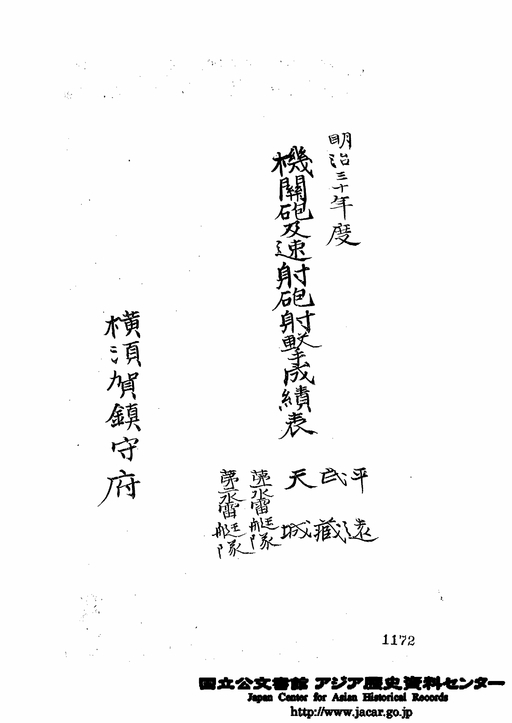 明治三十年度
機關砲及速射砲射擊成績表
平遠
武藏
天城
水雷艇隊
水雷艇隊
横須賀鎮守府
1172
国立公文書館 アジア歴史資料センター
Japan Center for Asian Historical Records
http://www.jacar.go.jp